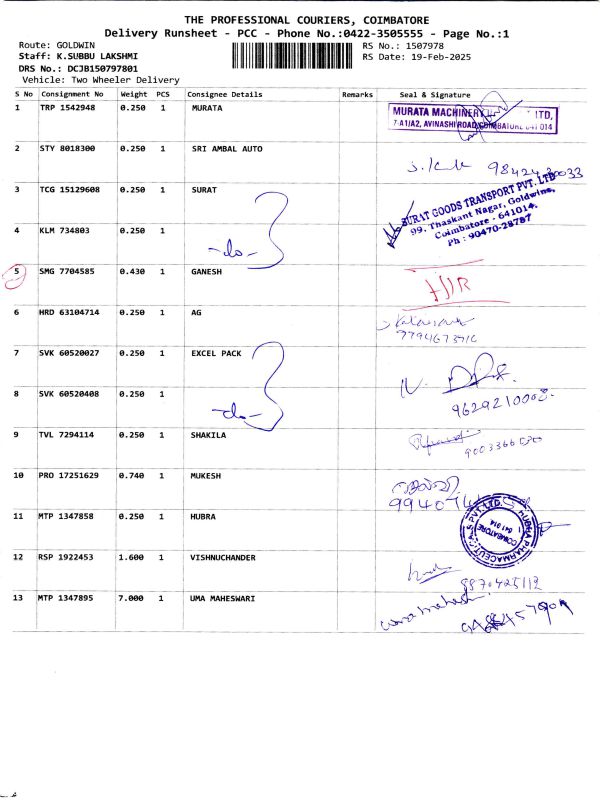 THE PROFESSIONAL COURIERS, COIMBATORE
Delivery Runsheet - PCC - Phone No.:0422-3505555 - Page No.:1
Route: GOLDWIN
RS No.: 1507978
Staff: K.SUBBU LAKSHMI
RS Date: 19-Feb-2025
DRS No.: DCJB150797801
Vehicle: Two Wheeler Delivery
S No Consignment No Weight PCS Consignee Details Remarks Seal & Signature
1 TRP 1542948 0.250 1 MURATA
MURATA MACHINERY LTD,
7-A1/A2, AVINASHI ROAD, COIMBATORE 641 014
2 STY 8018300 0.250 1 SRI AMBAL AUTO
3 TCG 15129608 0.250 1 SURAT
SURAT GOODS TRANSPORT PVT. LTD
99, Thaskant Nagar, Goldwins,
Coimbatore - 641014.
Ph : 90470-28787
4 KLM 734803 0.250 1 -do-
5 SMG 7704585 0.430 1 GANESH
6 HRD 63104714 0.250 1 AG
7 SVK 60520027 0.250 1 EXCEL PACK
8 SVK 60520408 0.250 1 -do-
9 TVL 7294114 0.250 1 SHAKILA
10 PRO 17251629 0.740 1 MUKESH
11 MTP 1347858 0.250 1 HUBRA
COIMBATORE
641 014
12 RSP 1922453 1.600 1 VISHNUCHANDER
8870425112
13 MTP 1347895 7.000 1 UMA MAHESWARI